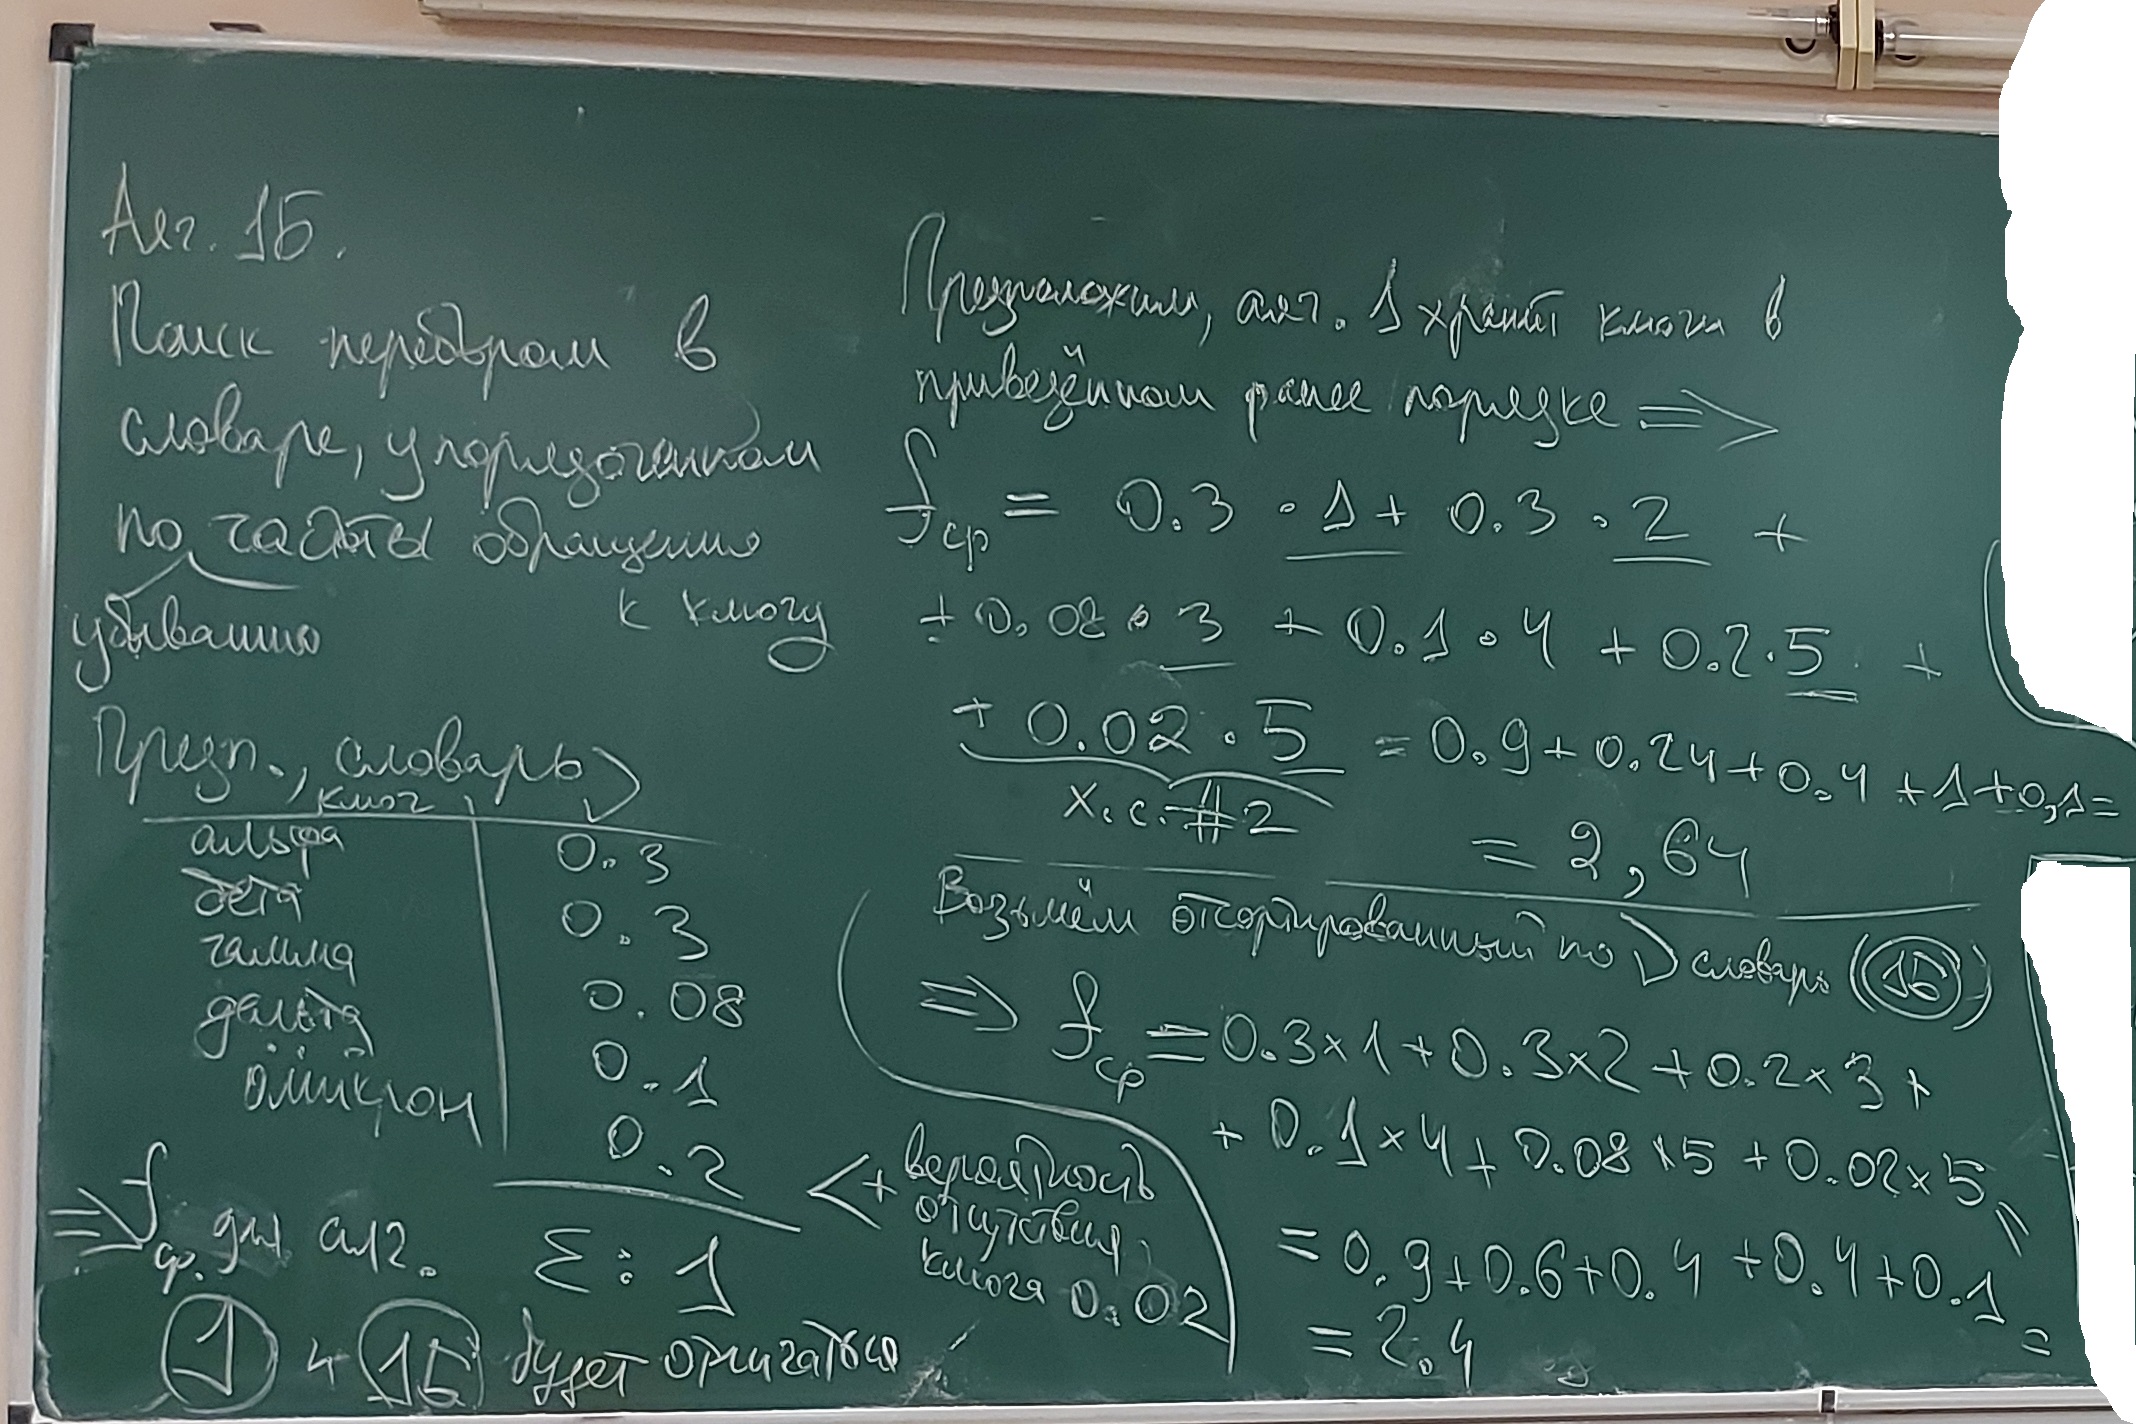 Алг. 1Б.
Поиск перебором в
словаре, упорядоченном
по частоты обращения
убыванию
к ключу
Предп., словарь
ключ
альфа 0.3
бета 0.3
гамма 0.08
дельта 0.1
омикрон 0.2
Σ: 1
<+ вероятность
отсутствия
ключа 0.02
=> fср. для алг.
1 и 1Б будет отличаться
Предположим, алг. 1 хранит ключи в
приведённом ранее порядке =>
fср = 0.3 · 1 + 0.3 · 2 +
+ 0.08 · 3 + 0.1 · 4 + 0.2 · 5 +
+ 0.02 · 5 = 0.9 + 0.24 + 0.4 + 1 + 0,1 =
х.с. #2
= 2,64
Возьмём отсортированный по словарь (1Б)
=> fср = 0.3×1 + 0.3×2 + 0.2×3 +
+ 0.1×4 + 0.08×5 + 0.02×5 =
= 0.9 + 0.6 + 0.4 + 0.4 + 0.1 =
= 2.4